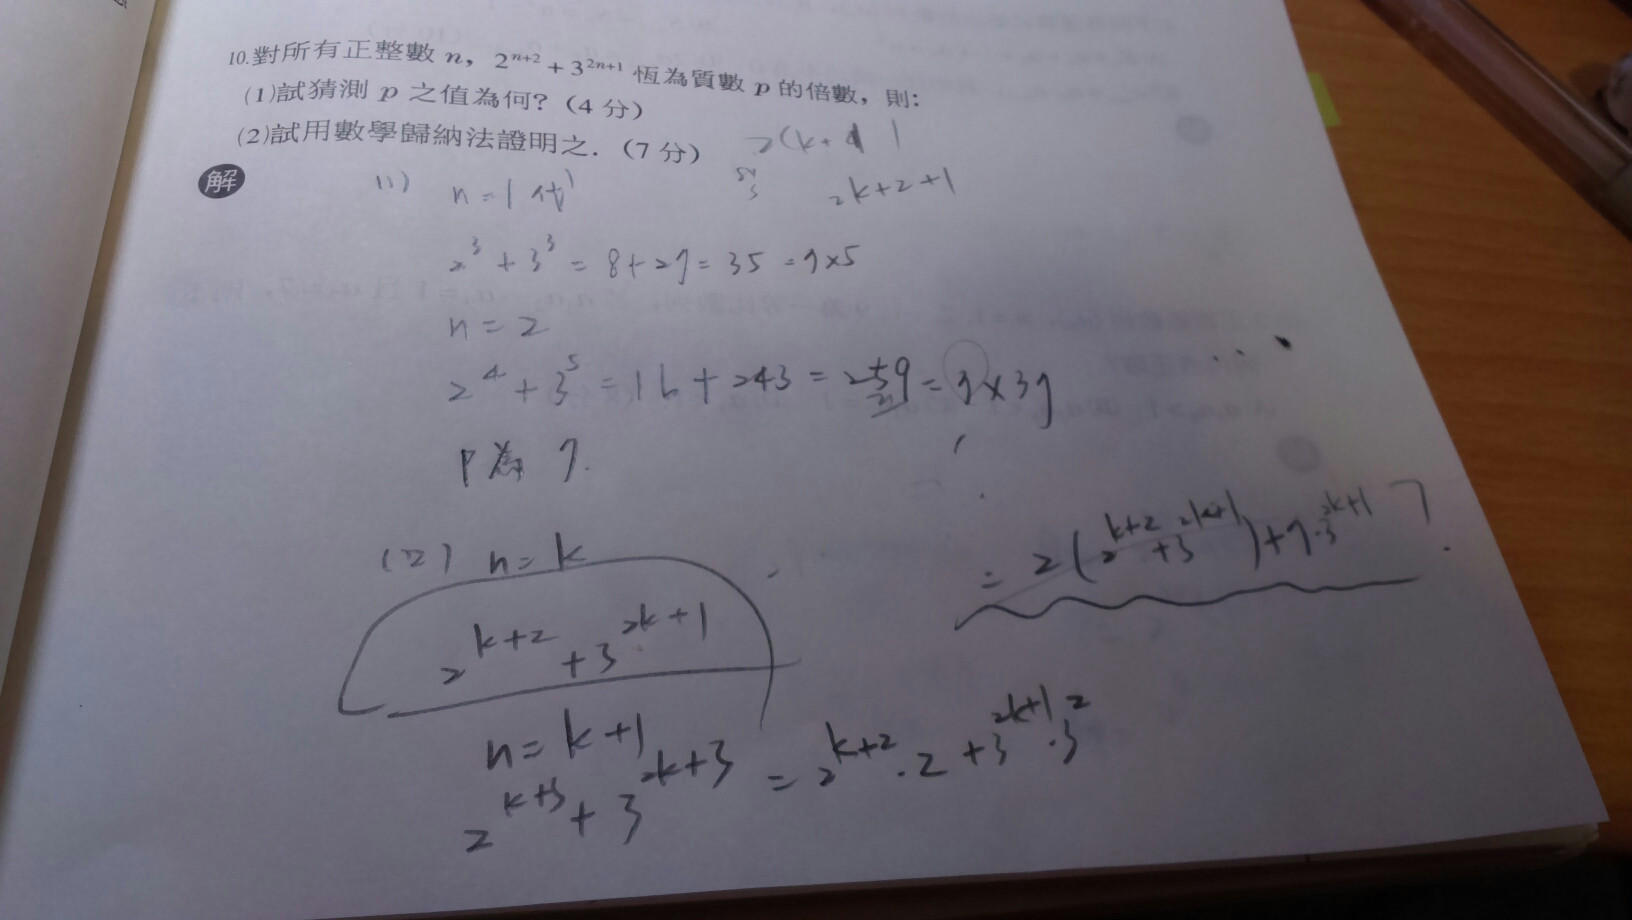 10.對所有正整數 n，2^{n+2} + 3^{2n+1} 恆為質數 p 的倍數，則：
(1)試猜測 p 之值為何？(4 分)
(2)試用數學歸納法證明之．(7 分)
2(k+1
2k+2+1
解
(1) n=1 代
2^3 + 3^3 = 8+27 = 35 = 7×5
n=2
2^4 + 3^5 = 16 + 243 = 259 = 7×37
P為 7.
(2) n=k
2^{k+2} + 3^{2k+1}
n=k+1
2^{k+3} + 3^{2k+3} = 2^{k+2}·2 + 3^{2k+1}·3^2
= 2(2^{k+2} + 3^{2k+1}) + 7·3^{2k+1}